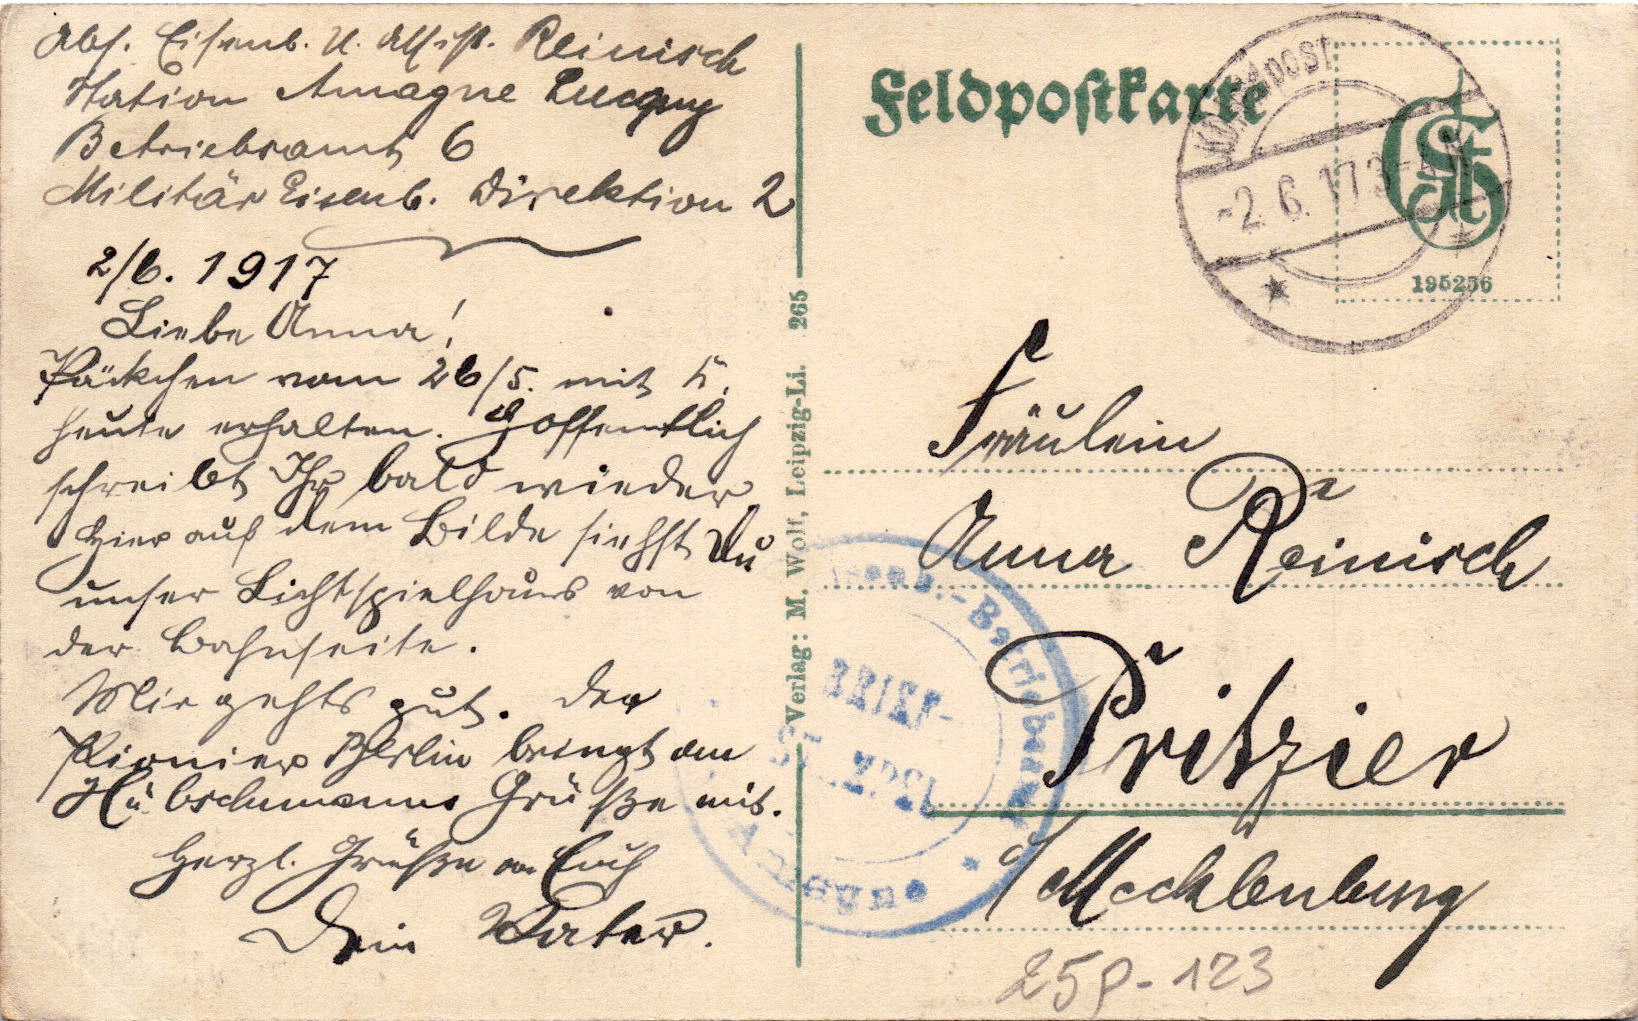 Abs. Eisenb. U. Assist. Reinisch
Station Amagne Lucquy
Betriebsamt 6
Militär Eisenb. Direktion 2
2/6. 1917
Liebe Anna!
Päckchen vom 26/5. mit
heute erhalten. Hoffentlich
schreibt Ihr bald wieder
Hier auf dem Bilde siehst Du
unser Lichtspielhaus von
der Bahnseite.
Mir gehts gut. Der
Pionier Berlin bringt
Hübschmanns Grüße mit.
Herzl. Grüße an Euch
Dein Vater.
Verlag: M. Wolf, Leipzig-Li. 265
Feldpostkarte
-2.6.17.3-4 N
195256
Fräulein
Anna Reinisch
Pritzier
i/Mecklenburg
Eisenb.-Betriebsamt
BRIEF-
Amagne
25p-123